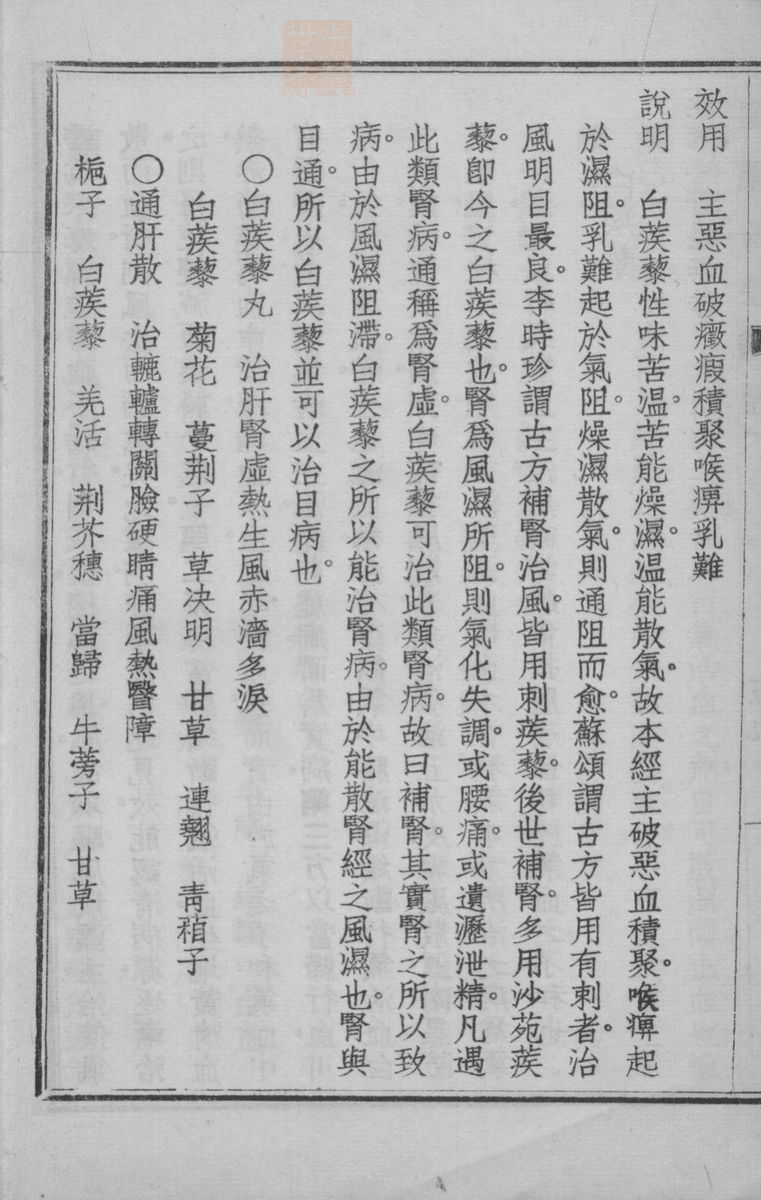 效用　主惡血破癥瘕積聚喉痹乳難
說明　白蒺藜性味苦温。苦能燥濕。温能散氣。故本經主破惡血積聚。喉痹起
於濕阻。乳難起於氣阻。燥濕散氣。則通阻而愈。蘇頌謂古方皆用有刺者。治
風明目最良。李時珍謂古方補腎治風。皆用刺蒺藜。後世補腎。多用沙苑蒺
藜。卽今之白蒺藜也。腎爲風濕所阻。則氣化失調。或腰痛。或遺瀝泄精。凡遇
此類腎病。通稱爲腎虛。白蒺藜可治此類腎病。故曰補腎。其實腎之所以致
病。由於風濕阻滯。白蒺藜之所以能治腎病。由於能散腎經之風濕也。腎與
目通。所以白蒺藜並可以治目病也。
〇白蒺藜丸　治肝腎虛熱生風赤濇多淚
白蒺藜　菊花　蔓荆子　草决明　甘草　連翹　青葙子
〇通肝散　治轆轤轉關臉硬睛痛風熱瞖障
梔子　白蒺藜　羌活　荆芥穗　當歸　牛蒡子　甘草